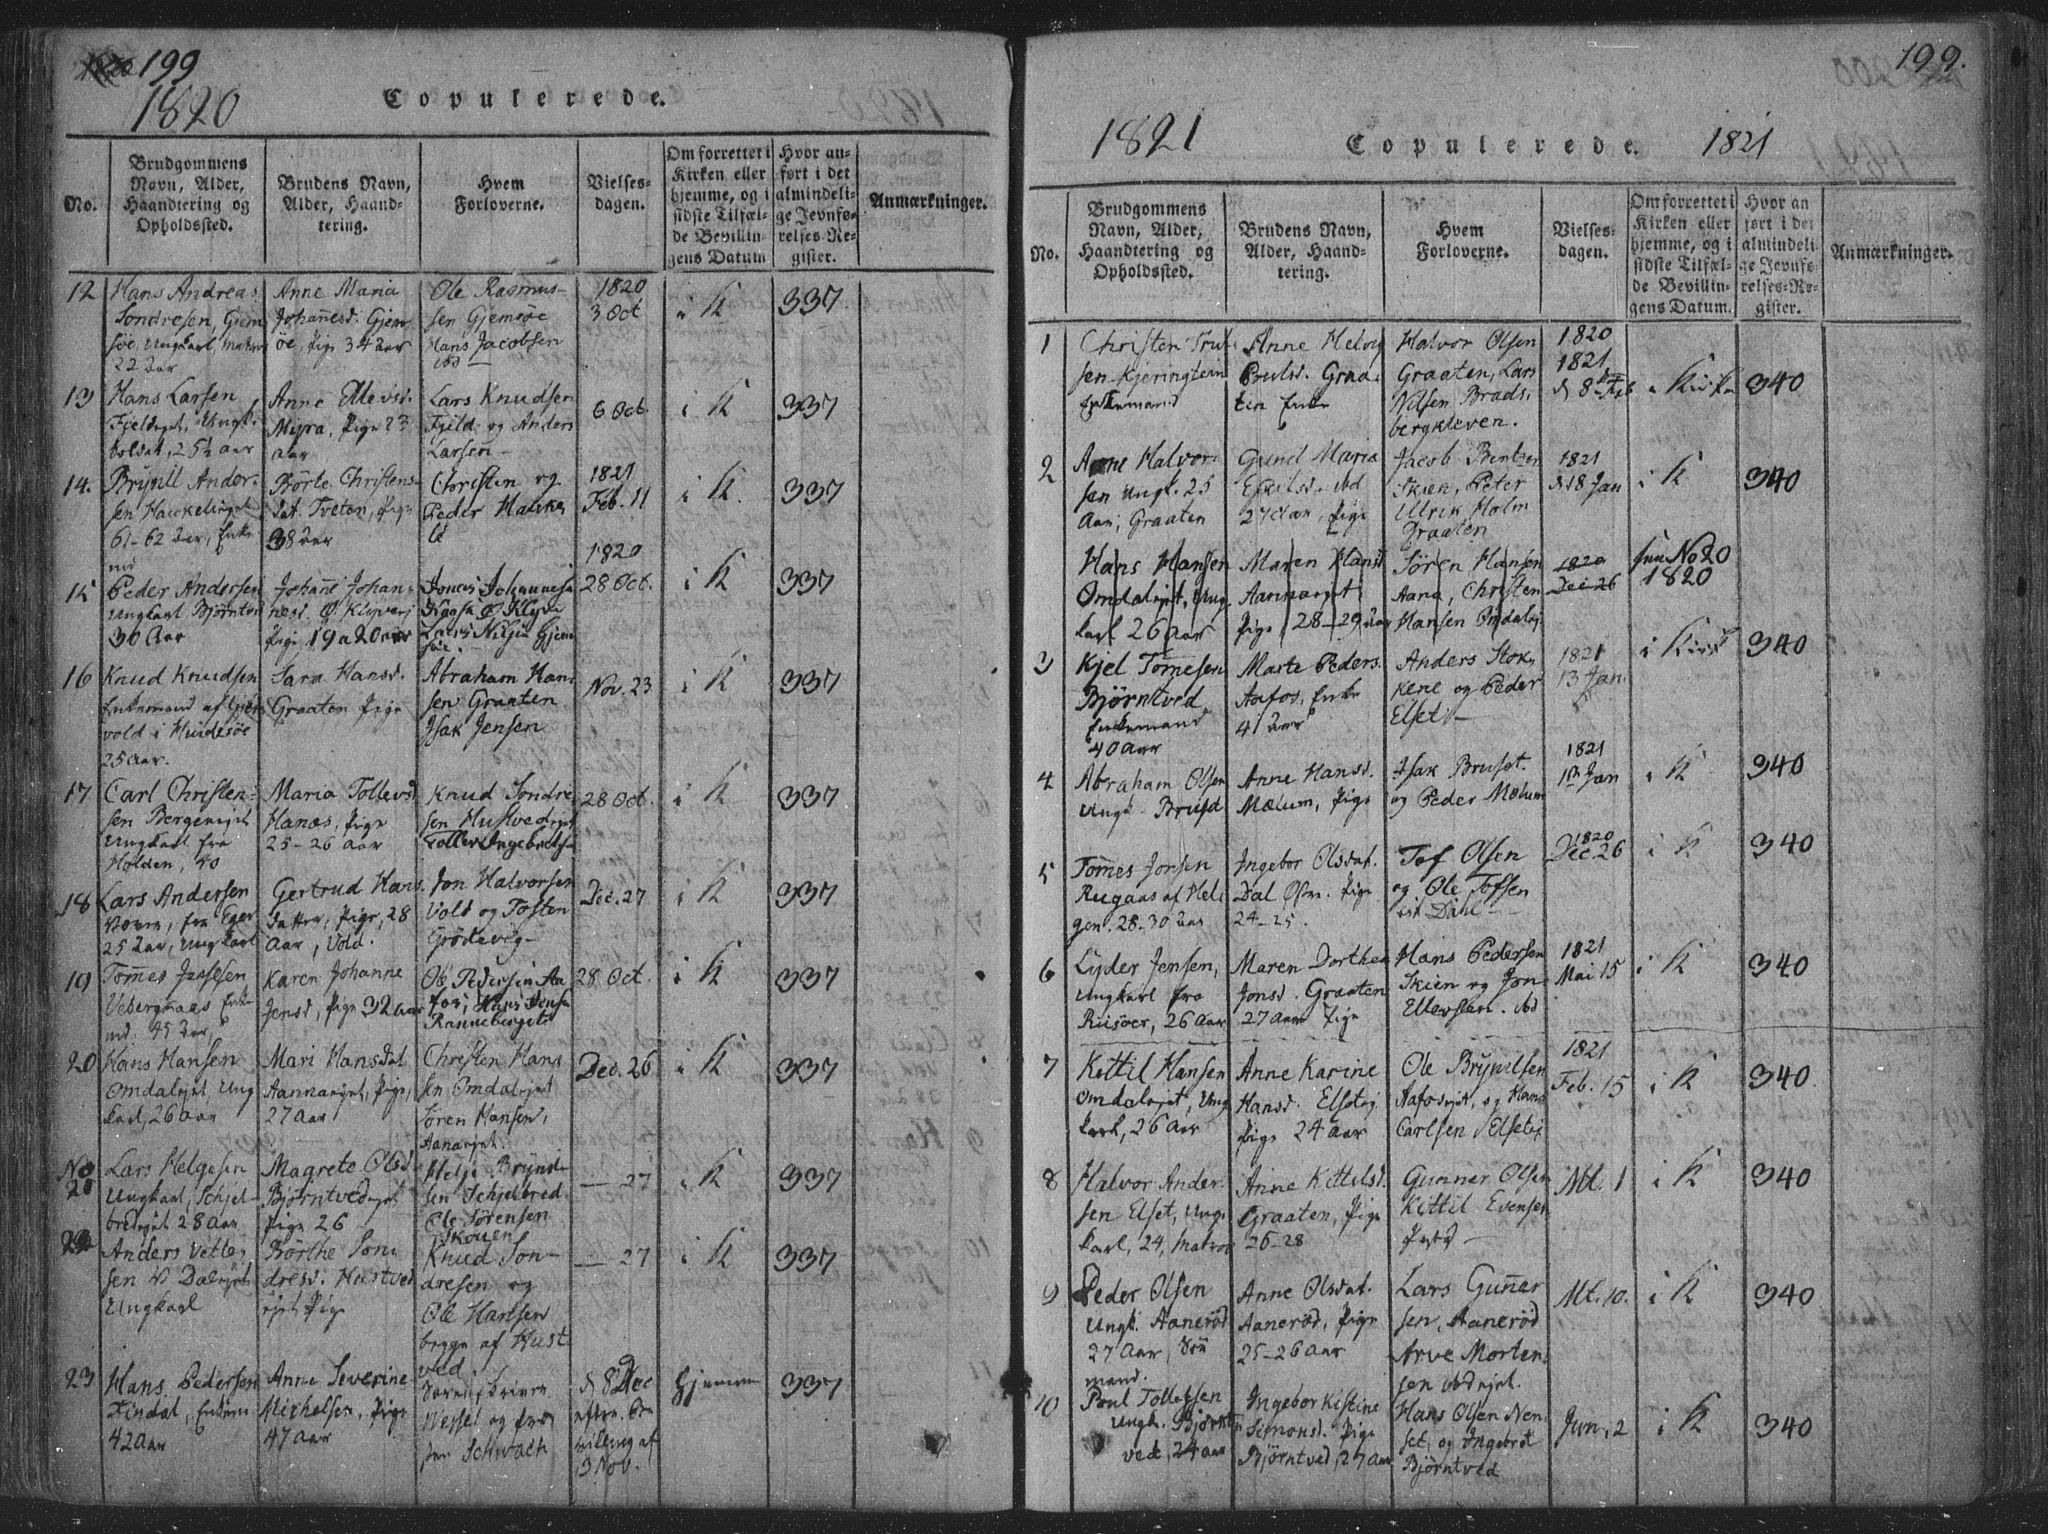 199
1820
Copulerede.
No.
Brudgommens Navn, Alder, Haandtering og Opholdssted.
Brudens Navn, Alder, Haandtering.
Hvem Forloverne.
Vielsesdagen.
Om forrettet i Kirken eller hjemme, og i sidste Tilfælde Bevillingens Datum
Hvor anført i det almindelige Jevnførelses-Register.
Anmærkninger.
12
Hans Andreas
Sondresen, Gjem
søe, Ungkarl, Matros
22 Aar
Anne Maria
Johannesd. Gjem
søe, Pige 34 aar
Ole Rasmus-
sen Gjemsøe
Hans Jacobsen
ibd
1820
3 Oct
i K
337
13
Hans Larsen
25½ aar
Anne Ellevsd.
Myra, Pige 23
aar
Lars Knudsen
Fjeld og Anders
Larsen
6 Oct.
i K
337
14.
Brynill Ander-
sen
61-62 Aar, Enke
md
Börte Christens
dat. Tveten, Pige
38 aar
Christen og
Peder
1821
Feb. 11
i K.
337
15
Peder Andersen
Ungkarl Bjørnted
30 Aar
Johane Johan-
nesd.
Pige 19 a 20 aar
1820
28 Oct.
i K
337
16
Knud Knudsen
Enkemand af
vold i
25 Aar.
Sara Hansd.
Graaten Pige
Abraham Han
sen Graaten
Isak Jensen
Nov. 23
i K
337
17
Carl Christen-
sen
Ungkarl fra
Holden, 40
Maria Tollevsd
Hanæs, Pige
25-26 aar
Knud Sondre
sen Hustved
Tollev Ingebretsen
28 Oct.
i K
337
18
Lars Andersen
fra Eger
25 Aar, Ungkarl
Gertrud Hans
datter, Pige, 28
Aar, Vold.
Jon Halvorsen
Vold og Tosten
Grödevig
Dec. 27
i K
337
19
Tomes Jessesen
md 45 Aar
Karen Johanne
Jensd, Pige 32 aar
Ole Pedersen Aa
fos, Hans Jensen
28 Oct.
i K
337
20
Hans Hansen
Omdalejet, Ung
karl, 26 aar
Mari Hansdat
Aannarejet, Pige,
27 Aar
Christen Hans
sen Omdalejet
Sören Hansen,
Aanarejet.
Dec. 26
i K
337
No
21
Lars Helgesen
Ungkarl, Schjel-
bredejet 28 Aar
Magrete Olsd
Bjørntvedejet
Pige 26
Helje Brynd
sen Schjelbred
Ole Sørensen
Skouen
— 27
i K
337
22
Anders Vetle
sen
Ungkarl
Börthe Son
dresd. Hustved
ejet Pige
Knud Son-
dresen og
Ole Hansen
begge af Hust
ved
— 27
i K
337
23
Hans Pedersen
Findal, Enkem
42 Aar
Anne Severine
Michelsen, Pige
47 aar
Sorenskriver
Wessel og
Schwach
d 8 Dec
efter Be
villing af
3 Nov.
Hjemme
337
199.
1821
Copulerede.
1821
No.
Brudgommens Navn, Alder, Haandtering og Opholdssted.
Brudens Navn, Alder, Haandtering.
Hvem Forloverne.
Vielsesdagen.
Om forrettet i Kirken eller hjemme, og i sidste Tilfælde Bevillingens Datum.
Hvor anført i det almindelige Jevnføreses-Register.
Anmærkninger.
1
Christen
sen Kjeringtein
Enkemand
Anne Helvig
Poulsd. Graa
ten Enke
Halvor Olsen
Graaten, Lars
Nilsen Brads
bergkleven.
1820
1821
d 8 Feb
i Kirke
340
2
Arne Halvor
sen Ungk. 25
Aar, Graaten
Gund Maria
Eskilsd. ibd
27 Aar, Pige
Jacob Bentzen
Skien, Peter
Ulrik Holm
Graaten
1821
d 18 Jan
i K
340
Hans Hansen
Omdalejet, Ung
karl 26 aar
Maren Hansd
Aannarejet
Pige, 28-29 aar
Sören Hansen
Aana, Christen
Hansen Omdalej
1820
Dec 26
see No 20
1820
3
Kjel Tomesen
Björntved
Enkemand
40 Aar
Marte Peders.
Aafos, Enke
41 Aar
Anders Stok
kene og Peder
Elset
1821
13 Jan
i Kirk
340
4
Abraham Olsen
Ungk. Brusd
Anne Hansd.
Mælum, Pige
Isak Brusdt.
og Peder Mælum
1821
13 Jan
i K
340
5
Tomes Jonsen
Rugaas af Hel
gen. 28-30 Aar
Ingebor Olsdat.
Dal Østre. Pige
24-25.
Tof Olsen
og Ole Tofsen
Dahl
1820
Dec 26
i K
340
6
Lyder Jensen,
Ungkarl fra
Riisöer, 26 Aar
Maren Dorthea
Jonsd. Graaten
27 Aar Pige
Hans Pedersen
Skien og Jon
Ellevsen. ibd
1821
Mai 15
i K
340
7
Kittil Hansen
Omdalejet, Ung
karl, 26 Aar
Anne Karine
Hansd. Elsetej
Pige 24 aar
Ole Brynilsen
Aafosejet, og Hans
Carlsen Elsetej
1821
Feb. 15
i K
340
8
Halvor Ander
sen Elset, Ung
karl, 24, Matros
Anne Kittilsd.
Graaten, Pige
26-28
Gunner Olsen
Kittil Evensen
Mt. 1
i K
340
9
Peder Olsen
Ungk. Aanerød
27 Aar, Söe
mand.
Anne Olsdat.
Aanerød, Pige
25-26 Aar
Lars Guner
sen, Aanerød
Arve Morten
sen ibdejet.
Mt. 10.
i K
340
10
Poul Tollefsen
Ungk. Bjørnt
ved, 24 aar
Ingebor Kistine
Simonsd. Pige
Bjørntved, 27 Aar
Hans Olsen Nen
set, og Ingebret
Bjørntved
Jun. 2
i K
340